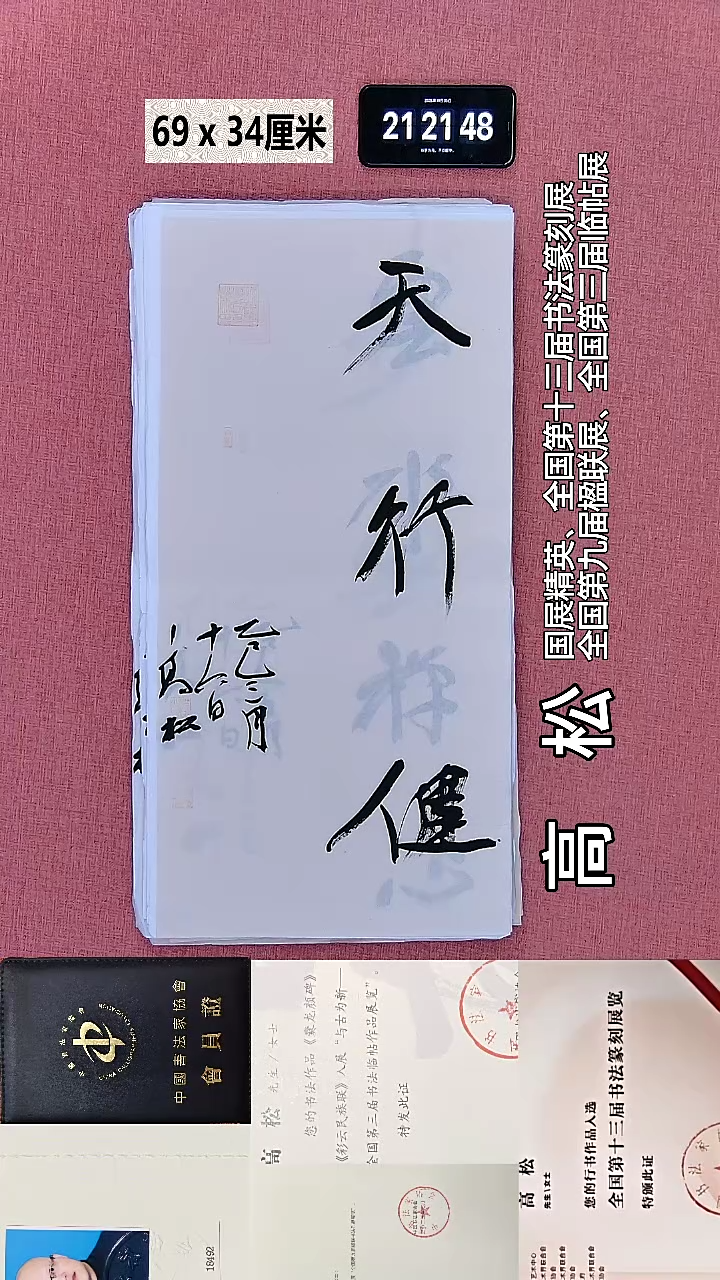 69 x 34厘米
21 21 48
天
行
健
乙巳二月
十六日
高松
国展精英、全国第十三届书法篆刻展
全国第九届楹联展、全国第三届临帖展
高 松
中國書法家協會
會員證
高 松 先生/女士
您的书法作品《爨龙颜碑》
《彩云民族联》入展“与古为新——
全国第三届书法临帖作品展览”。
特发此证
18492
高 松
先生\女士
您的行书作品入选
全国第十三届书法篆刻展览
特颁此证